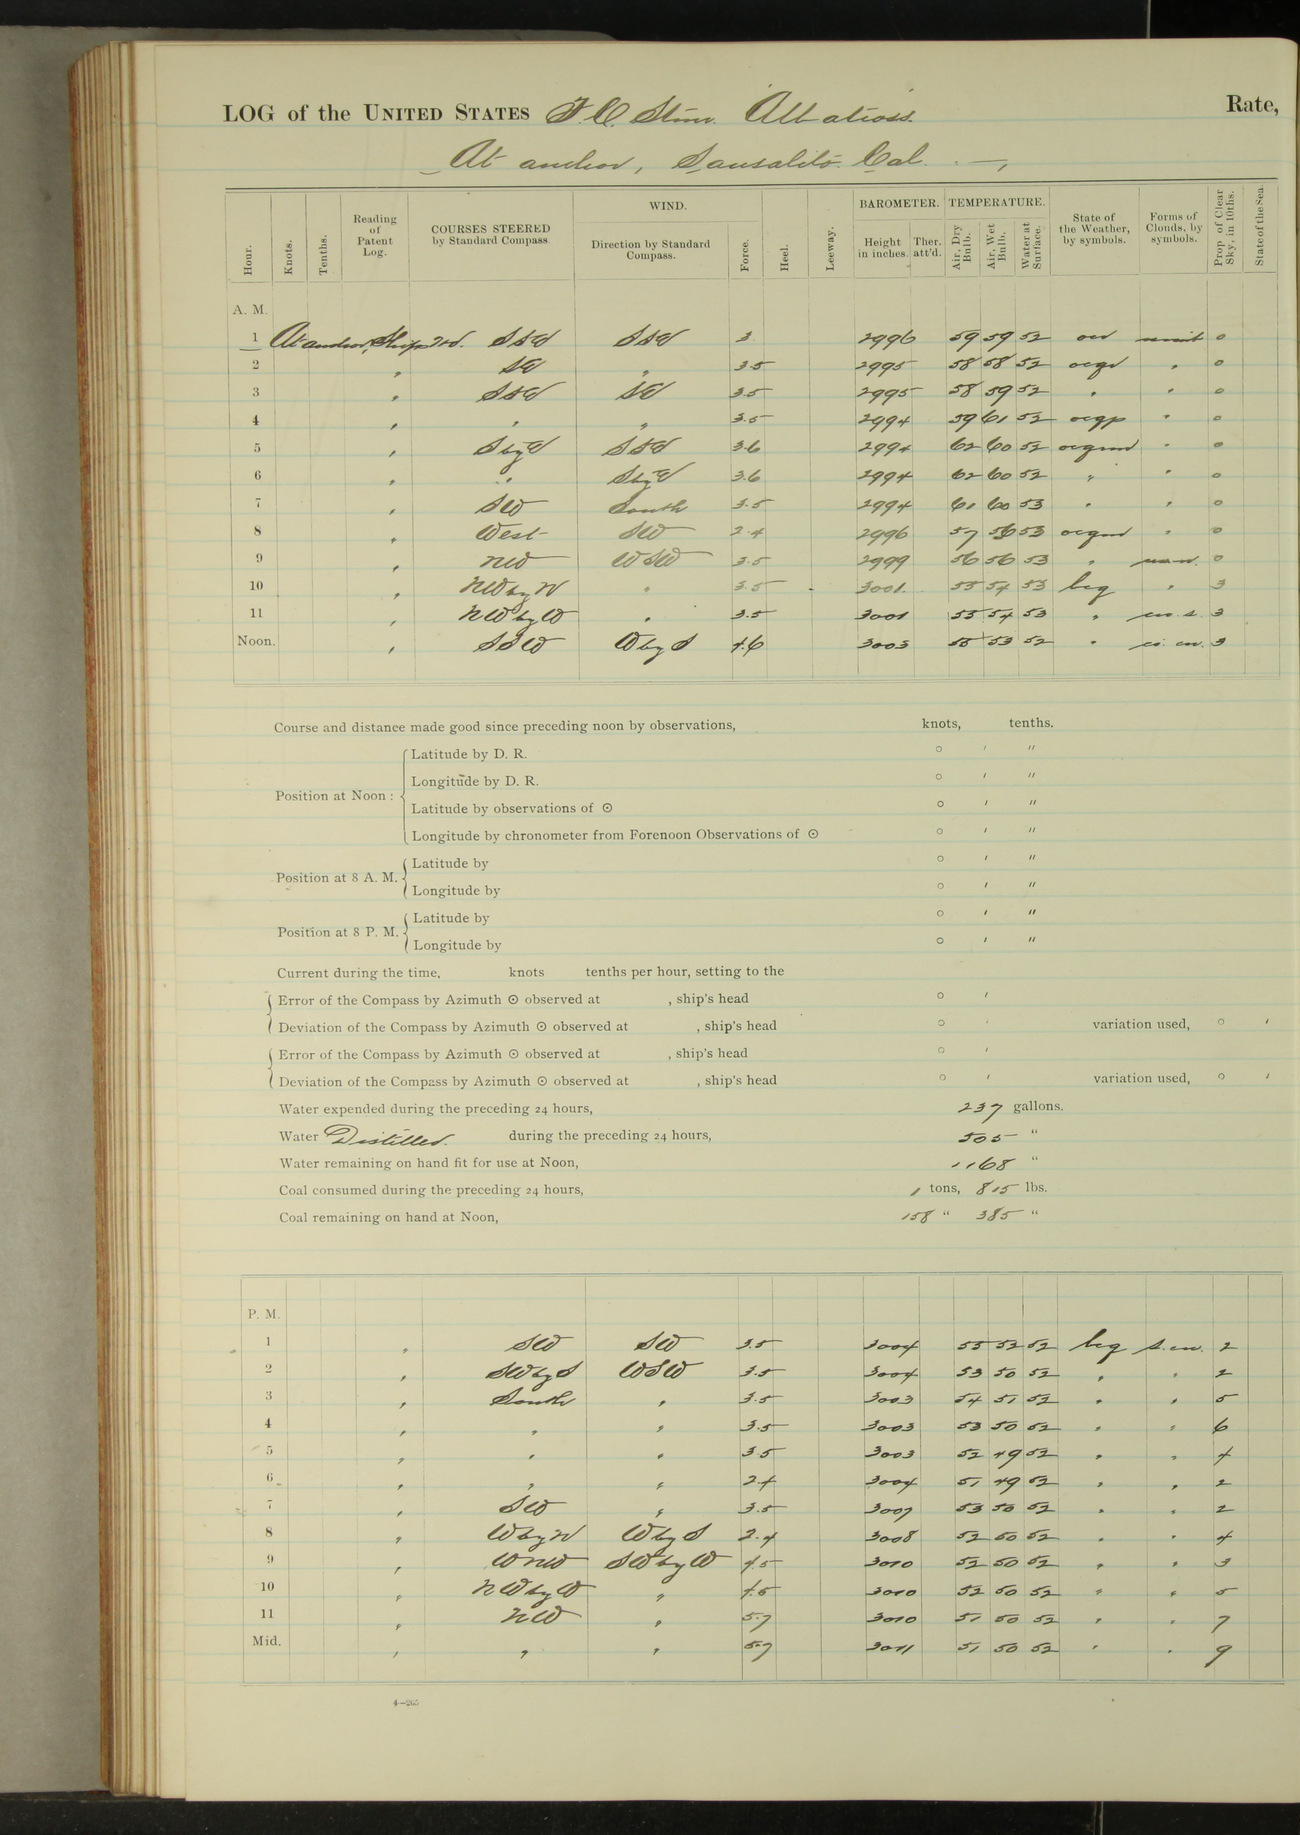 LOG of the UNITED STATES F. C. Stmr. Albatross. Rate,
At anchor, Sausalito Cal.
Hour. Knots. Tenths. Reading of Patent Log. COURSES STEERED by Standard Compass. WIND. Direction by Standard Compass. Force. Heel. Leeway. BAROMETER. Height in inches. Ther. att'd. TEMPERATURE. Air, Dry Bulb. Air, Wet Bulb. Water at Surface. State of the Weather, by symbols. Forms of Clouds, by symbols. Prop. of Clear Sky, in 10ths. State of the Sea.
A. M.
1 At anchor, Ship's hd. SSE SSE 3 2996 59 59 52 0
2 " SE " 3.5 2995 58 58 52 " 0
3 " SSE SE 3.5 2995 58 59 52 " " 0
4 " " " 3.5 2994 59 61 52 ocgp " 0
5 " S by E SSE 3.6 2994 62 60 52 " 0
6 " " S by E 3.6 2994 62 60 52 " " 0
7 " SW South 3.5 2994 61 60 53 " " 0
8 " West SW 2.4 2996 57 56 53 " 0
9 " NW WSW 3.5 2999 56 56 53 " 0
10 " NW by N " 3.5 3001 55 54 53 bcg " 3
11 " NW by W " 3.5 3001 55 54 53 " cu. s. 3
Noon. " SSW W by S 4.6 3003 55 53 52 " ci. cu. 3
Course and distance made good since preceding noon by observations, knots, tenths.
Position at Noon :
Latitude by D. R. ° ' "
Longitude by D. R. ° ' "
Latitude by observations of ☉ ° ' "
Longitude by chronometer from Forenoon Observations of ☉ ° ' "
Position at 8 A. M.
Latitude by ° ' "
Longitude by ° ' "
Position at 8 P. M.
Latitude by ° ' "
Longitude by ° ' "
Current during the time, knots tenths per hour, setting to the
Error of the Compass by Azimuth ☉ observed at , ship's head ° '
Deviation of the Compass by Azimuth ☉ observed at , ship's head ° ' variation used, ° '
Error of the Compass by Azimuth ☉ observed at , ship's head ° '
Deviation of the Compass by Azimuth ☉ observed at , ship's head ° ' variation used, ° '
Water expended during the preceding 24 hours, 237 gallons.
Water Distilled. during the preceding 24 hours, 505 "
Water remaining on hand fit for use at Noon, 1168 "
Coal consumed during the preceding 24 hours, 1 tons, 815 lbs.
Coal remaining on hand at Noon, 158 " 385 "
P. M.
1 " SW SW 3.5 3004 55 52 52 bcg s. cu. 2
2 " SW by S WSW 3.5 3004 53 50 52 " " 2
3 " South " 3.5 3003 54 51 52 " " 5
4 " " " 3.5 3003 53 50 52 " " 6
5 " " " 3.5 3003 52 49 52 " " 4
6 " " " 2.4 3004 51 49 52 " " 2
7 " SW " 3.5 3007 53 50 52 " " 2
8 " W by N W by S 2.4 3008 52 50 52 " " 4
9 " WNW SW by W 4.5 3010 52 50 52 " " 3
10 " NW by W " 4.5 3010 52 50 52 " " 5
11 " NW " 5.7 3010 51 50 52 " " 7
Mid. " " " 5.7 3011 51 50 52 " " 9
4—265